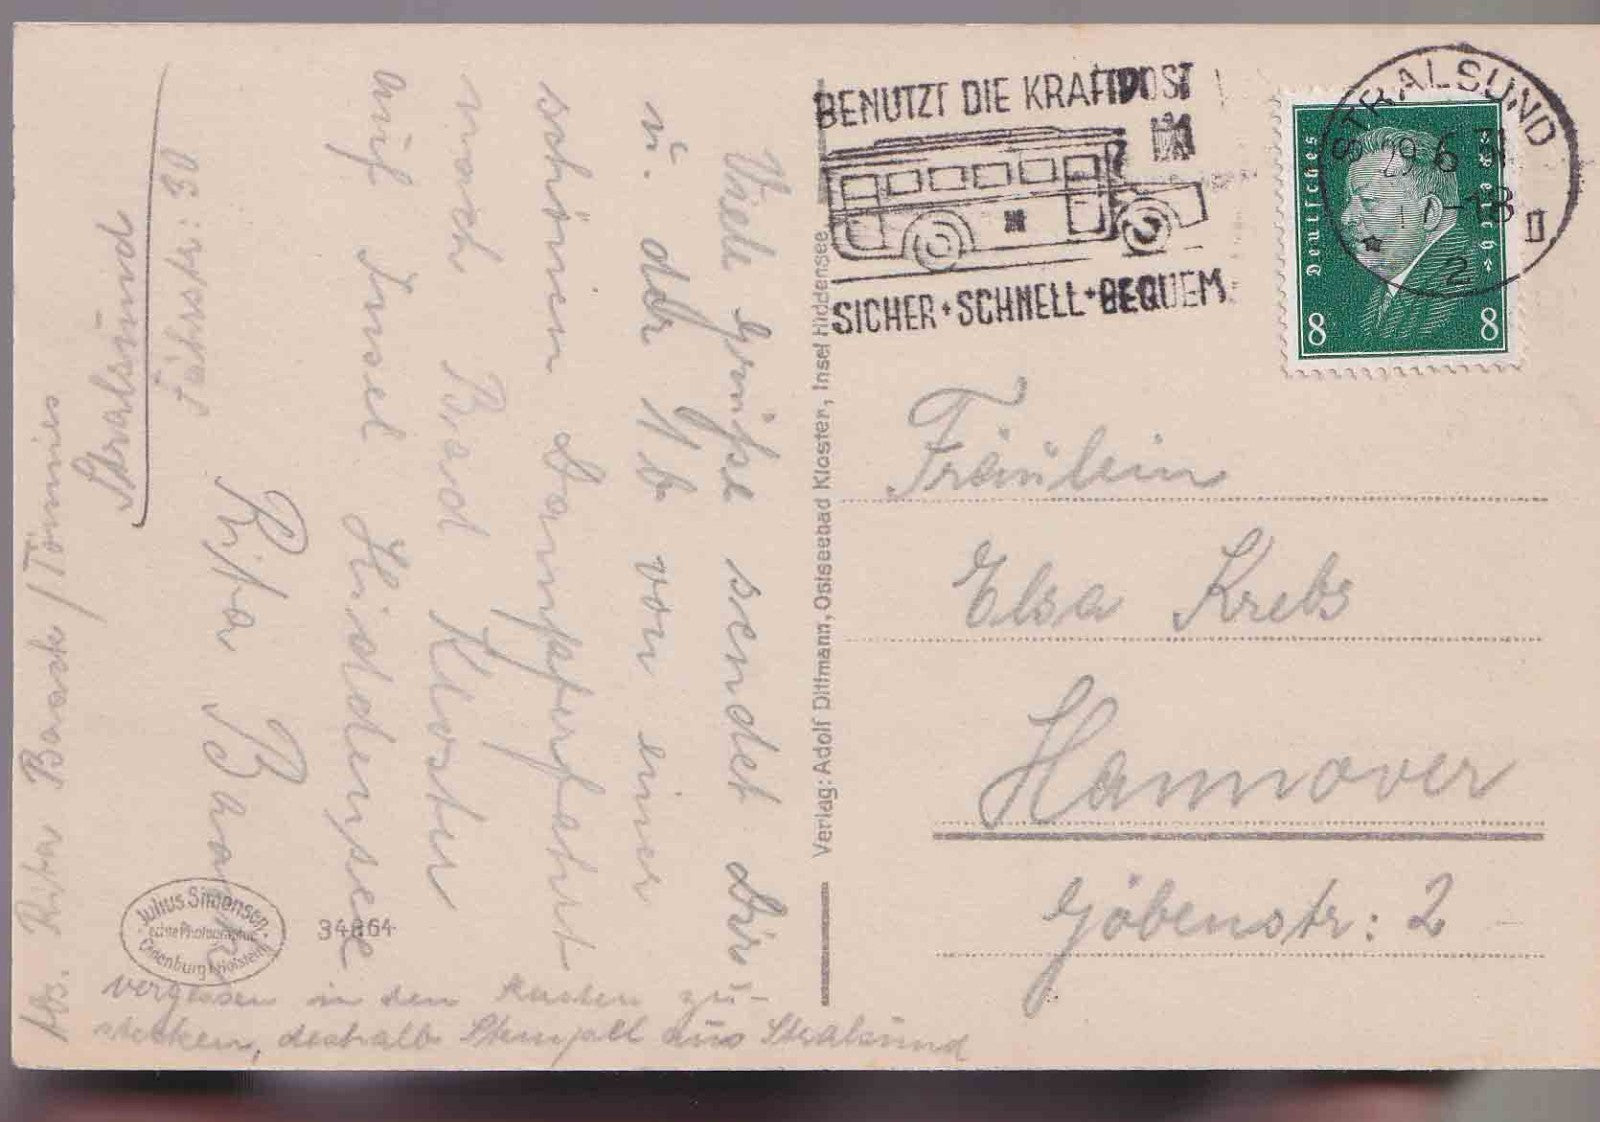 BENUTZT DIE KRAFTPOST
SICHER + SCHNELL + BEQUEM
STRALSUND
29 6 31
-18
2
Deutsches Reich
8 8
Fräulein
Elsa Krebs
Hannover
Göbenstr: 2
Verlag: Adolf Dittmann, Ostseebad Kloster, Insel Hiddensee
Viele Grüße sendet Dir
u. der von einer
schönen Dampferfahrt
nach Bad Kloster
auf Insel Hiddensee
Rita
vergessen in den Kasten zu-
stecken, deshalb Stempel aus Stralsund
Abs. Rita Baack / Tönnies
Stralsund
Fährstr: 30
Julius Simonsen
echte Photographie
Oldenburg i. Holstein
34864